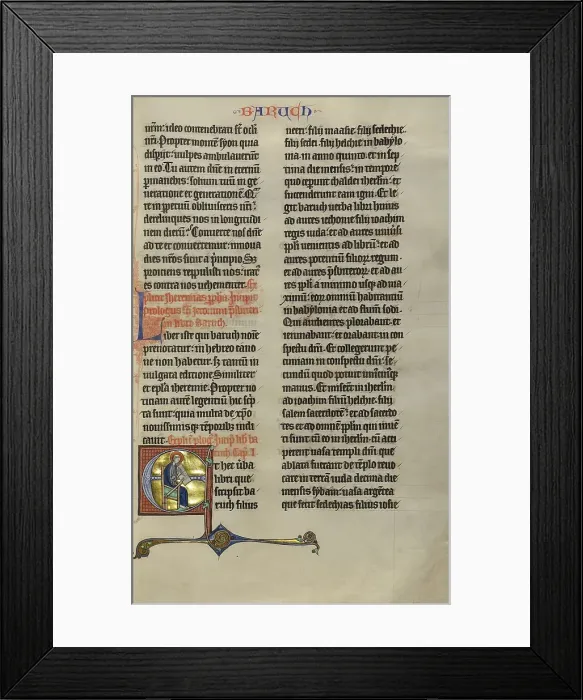 BARUCH
nr̄m: ideo contenebrati st̄ oculi
nr̄i. Propter montē syon quia
disp̄iit: uulpes ambulauerūt
in eo. Tu autem dn̄e in eternū
ꝑmanebis: solium tuū in ge
neratione et generationē. Qͣ
re in ꝑpetuū obliuisceris nr̄i:
derelinques nos in longitudi
nem dierū: Conuerte nos dn̄e
ad te et conuertemur: innoua
dies nr̄os sicut a p̄ncipio. Sꝫ
proiciens reppulisti nos: irat᷒
es contra nos uehementer.
prologus
in libro Baruch.
Liber iste qui baruch noīe
prenotatur: in hebreo cano
ne non habetur: sꝫ tantū in
uulgata editione. Similiter
et epl̄a iheremie. Propter no
ticiam autē legentiū hic sc̄p
ta sunt: quia multa de xp̄o
nouissimisqꝫ tēporibꝫ indi
cant.
Et hec uerba
libri que
scripsit ba
ruch filius
neeri: filij maasie: filij sedechie:
filij sedei: filij helchie in babylo
nia: in anno quinto: et in sep
tima die mensis: in tempore
quo ceperunt chaldei ihrl̄m: et
succenderunt eam igni. Et le
git baruch uerba libri huius
ad aures iechonie filij ioachim
regis iuda: et ad aures uniūsi
ppl̄i uenientis ad librū: et ad
aures potentiū filioꝝ regum:
et ad aures p̄sbiteroꝝ: et ad au
res ppl̄i a minimo usqꝫ ad ma
ximū: eoꝝ omniū habitantiū
in babylonia et ad fluuī sodi.
Qui audientes plorabant: et
ieiunabant: et orabant in con
spectu dn̄i. Et collegerunt pe
cuniam in conspectu dn̄i: se
cundū quod potuit unicuiqꝫ
manus. Et miserūt in ihrl̄m
ad ioachim filiū helchie: filij
salem sacerdotē: et ad sacerdo
tes: et ad omnē ppl̄m qui inuēt
ti sunt cū eo in ihrl̄m: cū acci
perent uasa templi dn̄i: que
ablata fuerant de tēplo reuo
care in terrā iuda decima die
mensis syban: uasa argētea
que fecit sedechias filius iosie